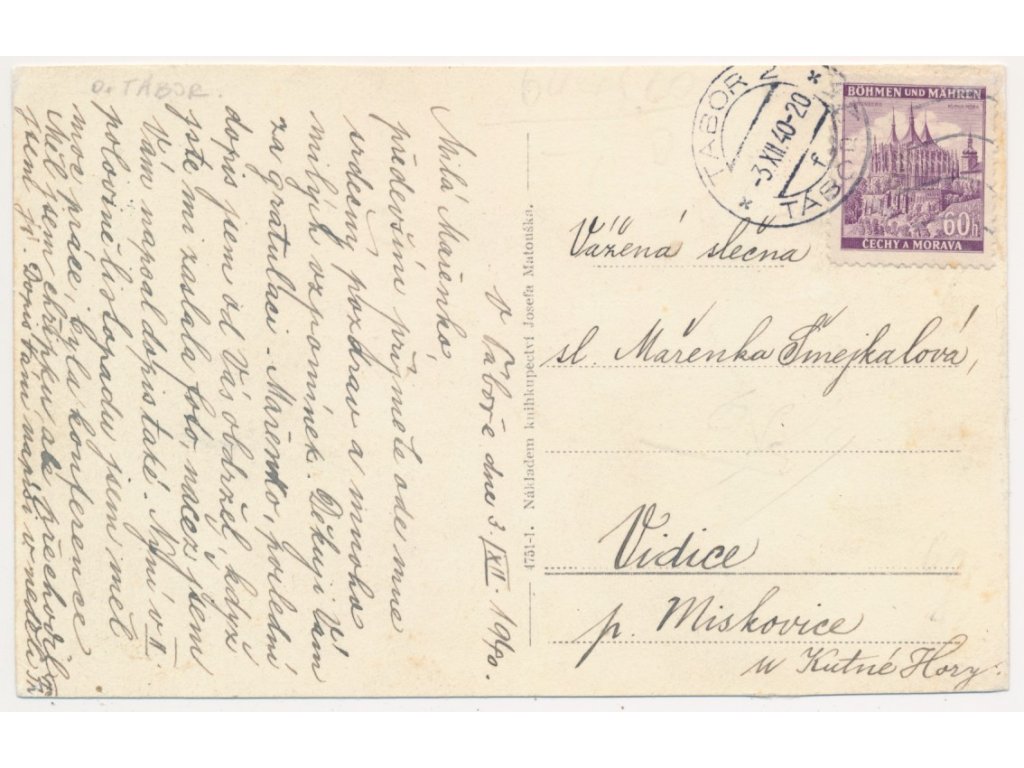 O. TÁBOR.
V Táboře dne 3./XII. 1940.
Milá Mařenko,
především přijměte ode mne
srdečný pozdrav a mnoho
milých vzpomínek. Děkuji Vám
za gratulaci. Mařenko, poslední
dopis jsem od Vás obdržel, když
jste mi zaslala foto, načež jsem
Vám napsal dopis také. Nyní v II.
polovině listopadu jsem měl
moc práce, byla konference
Měl jsem chřipku ale přechodil
jsem ji. Dopis Vám napíši v neděli
4751-1. Nákladem knihkupectví Josefa Matouška.
TÁBOR 2
-3.XII.40-20
f
TÁBOR 2
BÖHMEN UND MÄHREN
60h
ČECHY A MORAVA
Vážená slečna
sl. Mařenka Šmejkalová,
Vidice
p. Miskovice
u Kutné Hory.